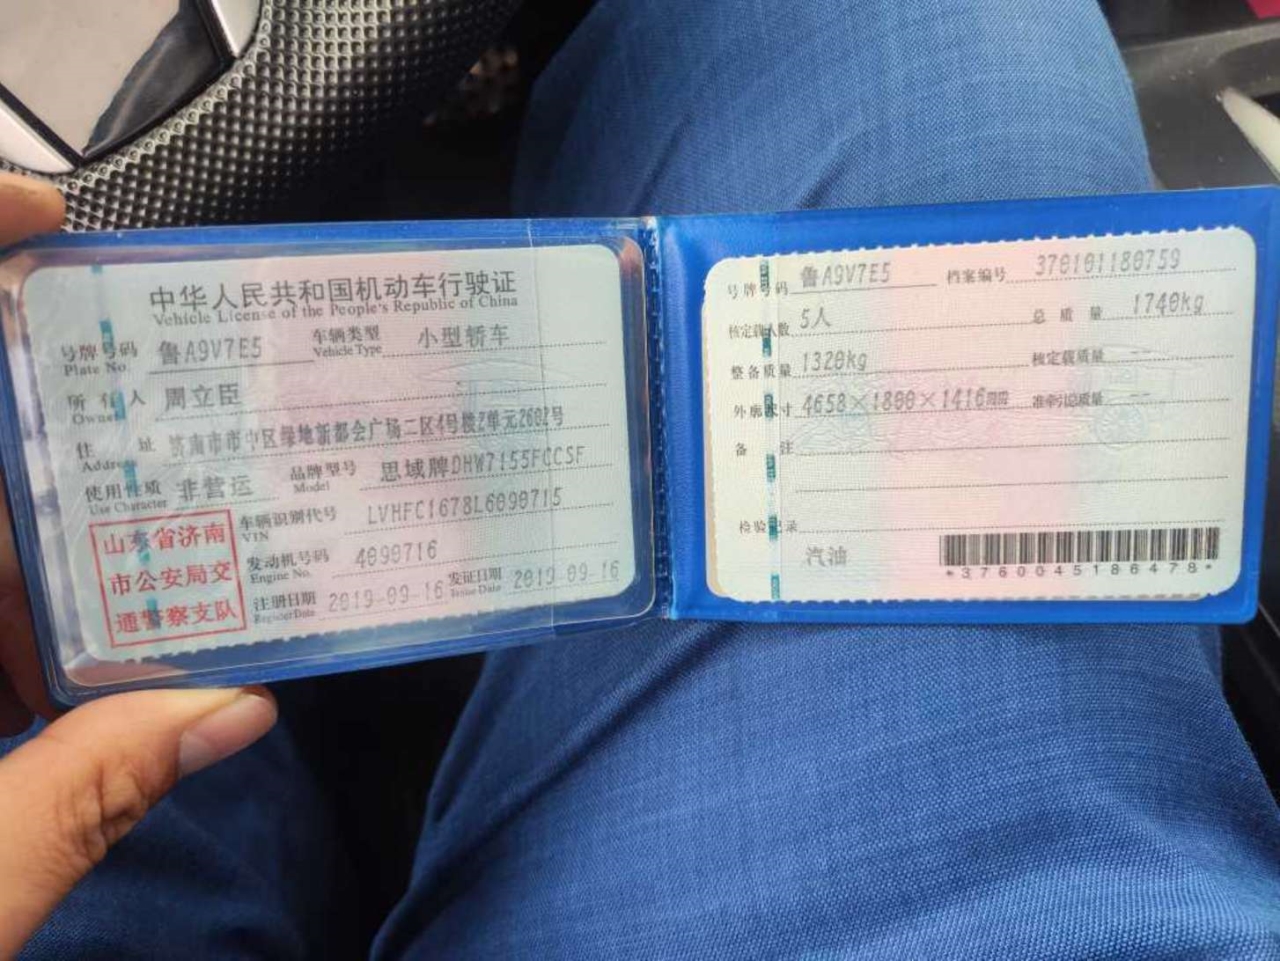 中华人民共和国机动车行驶证
Vehicle License of the People's Republic of China
号牌号码 鲁A9V7E5 车辆类型 小型轿车
Plate No. Vehicle Type
所有人 周立臣
Owner
住址 济南市市中区绿地新都会广场二区4号楼2单元2602号
Address
使用性质 非营运 品牌型号 思域牌DHW7155FCCSF
Use Character Model
车辆识别代号 LVHFC1678L6090715
VIN
发动机号码 4090716
Engine No.
注册日期 2019-09-16 发证日期 2019-09-16
Register Date Issue Date
山东省济南
市公安局交
通警察支队
号牌号码 鲁A9V7E5 档案编号 370101180759
核定载人数 5人 总质量 1740kg
整备质量 1320kg 核定载质量 --
外廓尺寸 4658×1800×1416mm 准牵引总质量 --
备注
检验记录
汽油
*3760045186478*